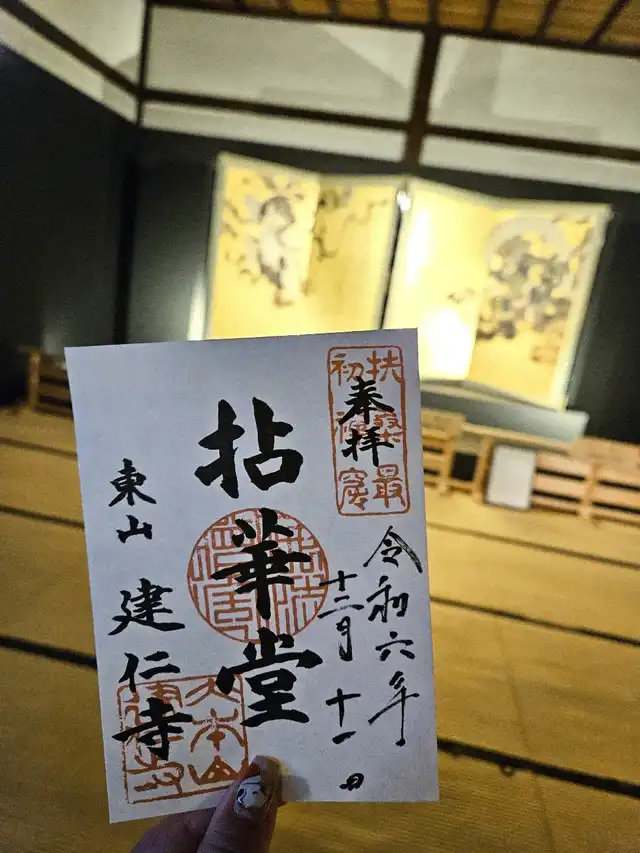 扶桑最
初禅窟
奉拝
令和六年
十二月十一日
拈華堂
東山
建仁寺
大本山
建仁寺